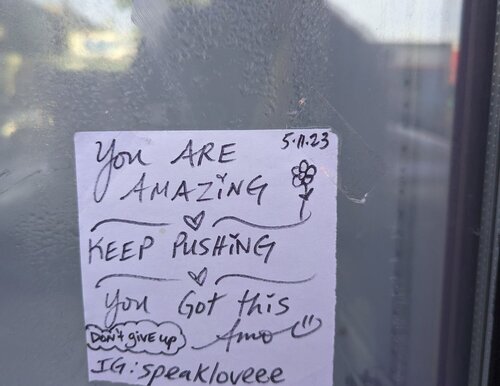 5.11.23
You ARE
AMAZING
KEEP PUSHING
You Got this
DON'T GIVE UP
Amo
IG: speakloveee